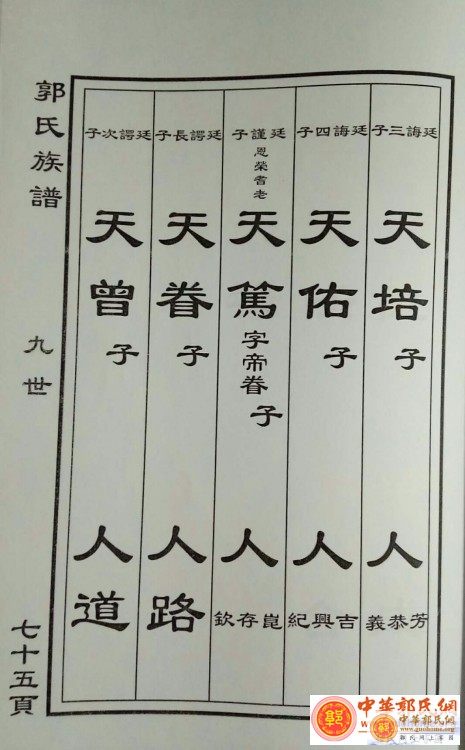 廷誨三子
天培子
人
芳恭義
廷誨四子
天佑子
人
吉興紀
廷謹子
恩榮耆老
天篤字帝眷子
人
崑存欽
廷諤長子
天眷子
人路
廷諤次子
天曾子
人道
郭氏族譜
九世
七十五頁
郭
中華郭氏網
www.guohome.org